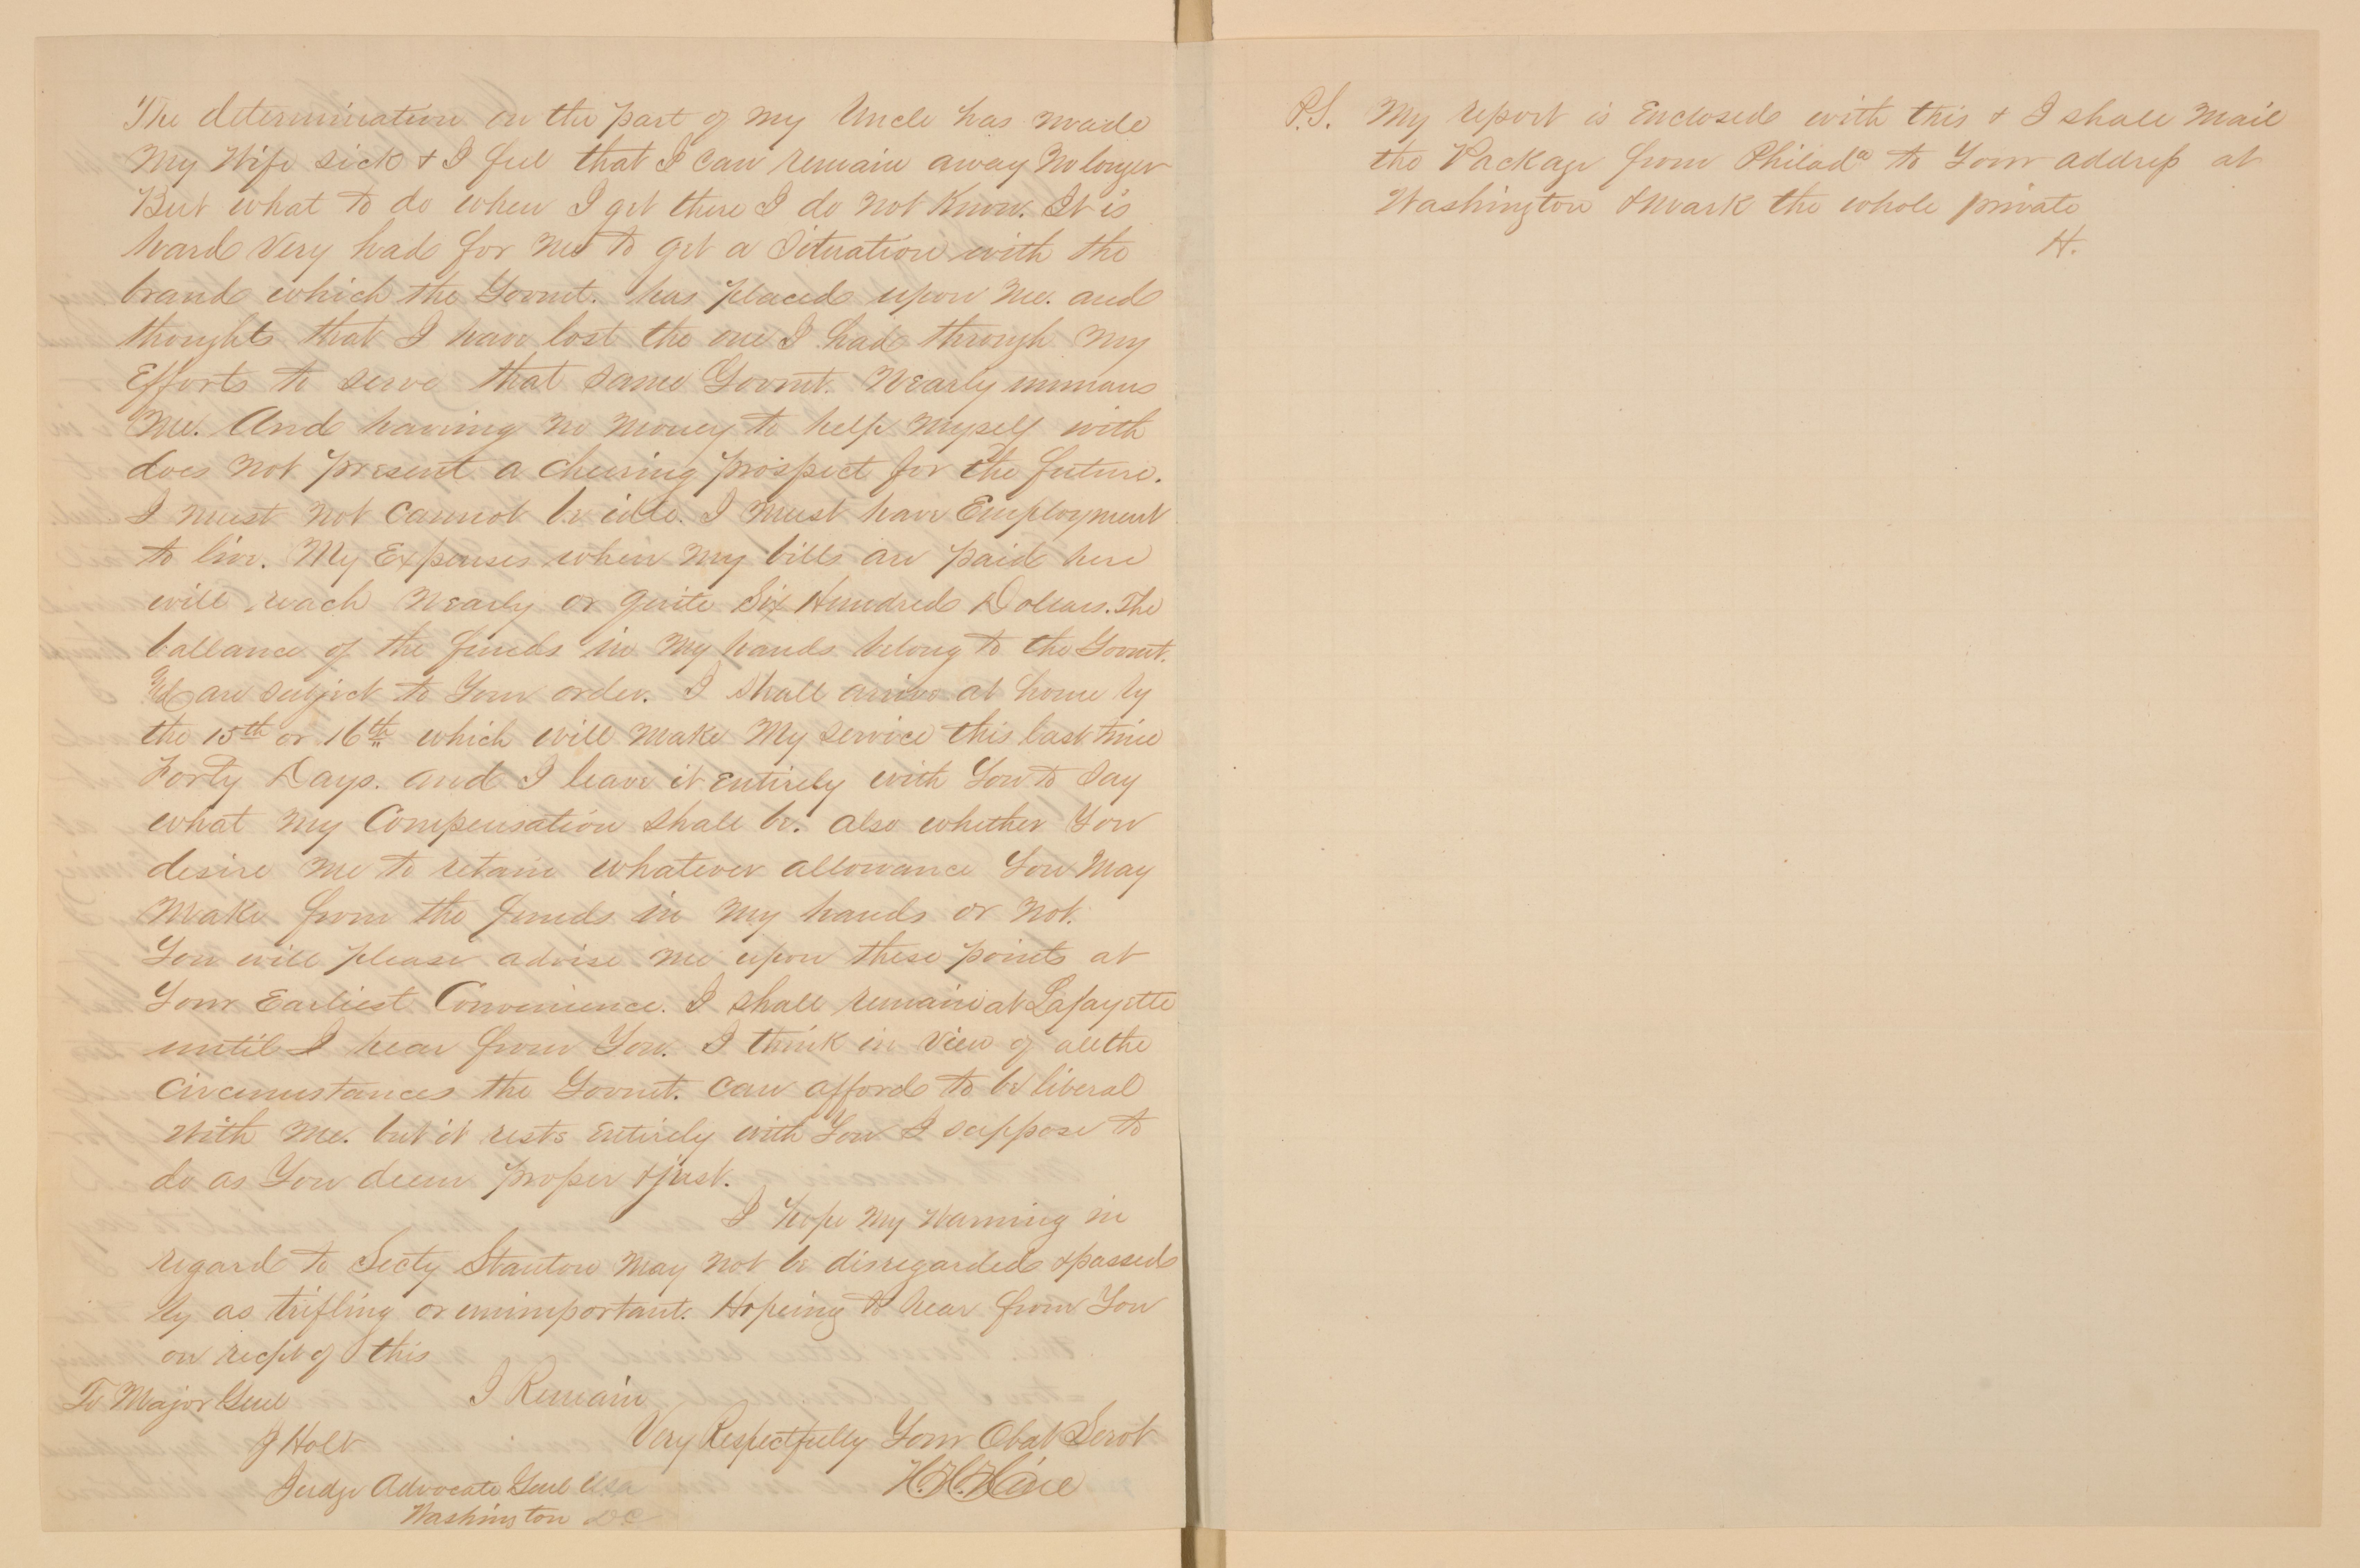 The determination on the part of my Uncle has made
my Wife sick & I feel that I can remain away no longer
But what to do when I get there I do not Know. It is
hard very had for me to get a Situation with the
brand which the Govmt. has placed upon me. and
thoughts that I have lost the one I had through my
Efforts to serve that same Govmt. Nearly unmans
me. And having no money to help myself with
does not present a cheering prospect for the future.
I must not cannot be idle. I must have Employment
to live. My Expenses when my bills are paid here
will reach Nearly or quite Six Hundred Dollars. The
ballance of the funds in my hands belong to the Govmt.
& are subject to Your order. I shall arrive at home by
the 15th or 16th which will make My service this last time
Forty Days. and I leave it Entirely with You to Say
what my Compensation shall be. also whether You
desire me to retain whatever allowance You May
Make from the funds in my hands or not.
You will please advise me upon these points at
Your Earliest Convenience. I shall remain at Lafayette
until I hear from You. I think in view of all the
Circumstances the Govmt. can afford to be liberal
with me. but it rests Entirely with You I suppose to
do as You deem proper & just.
I hope my Warning in
regard to Secty Stanton may not be disregarded & passed
by as trifling or unimportant. Hopeing to hear from You
on recpt of this
I Remain
Very Respectfully Your Obat Servt
H.H.Hine
To Major Genl
J Holt
Judge Advocate Genl USA
Washington DC
P.S. My report is Enclosed with this & I shall Mail
the Package from Philada to Your address at
Washington & mark the whole private
H.